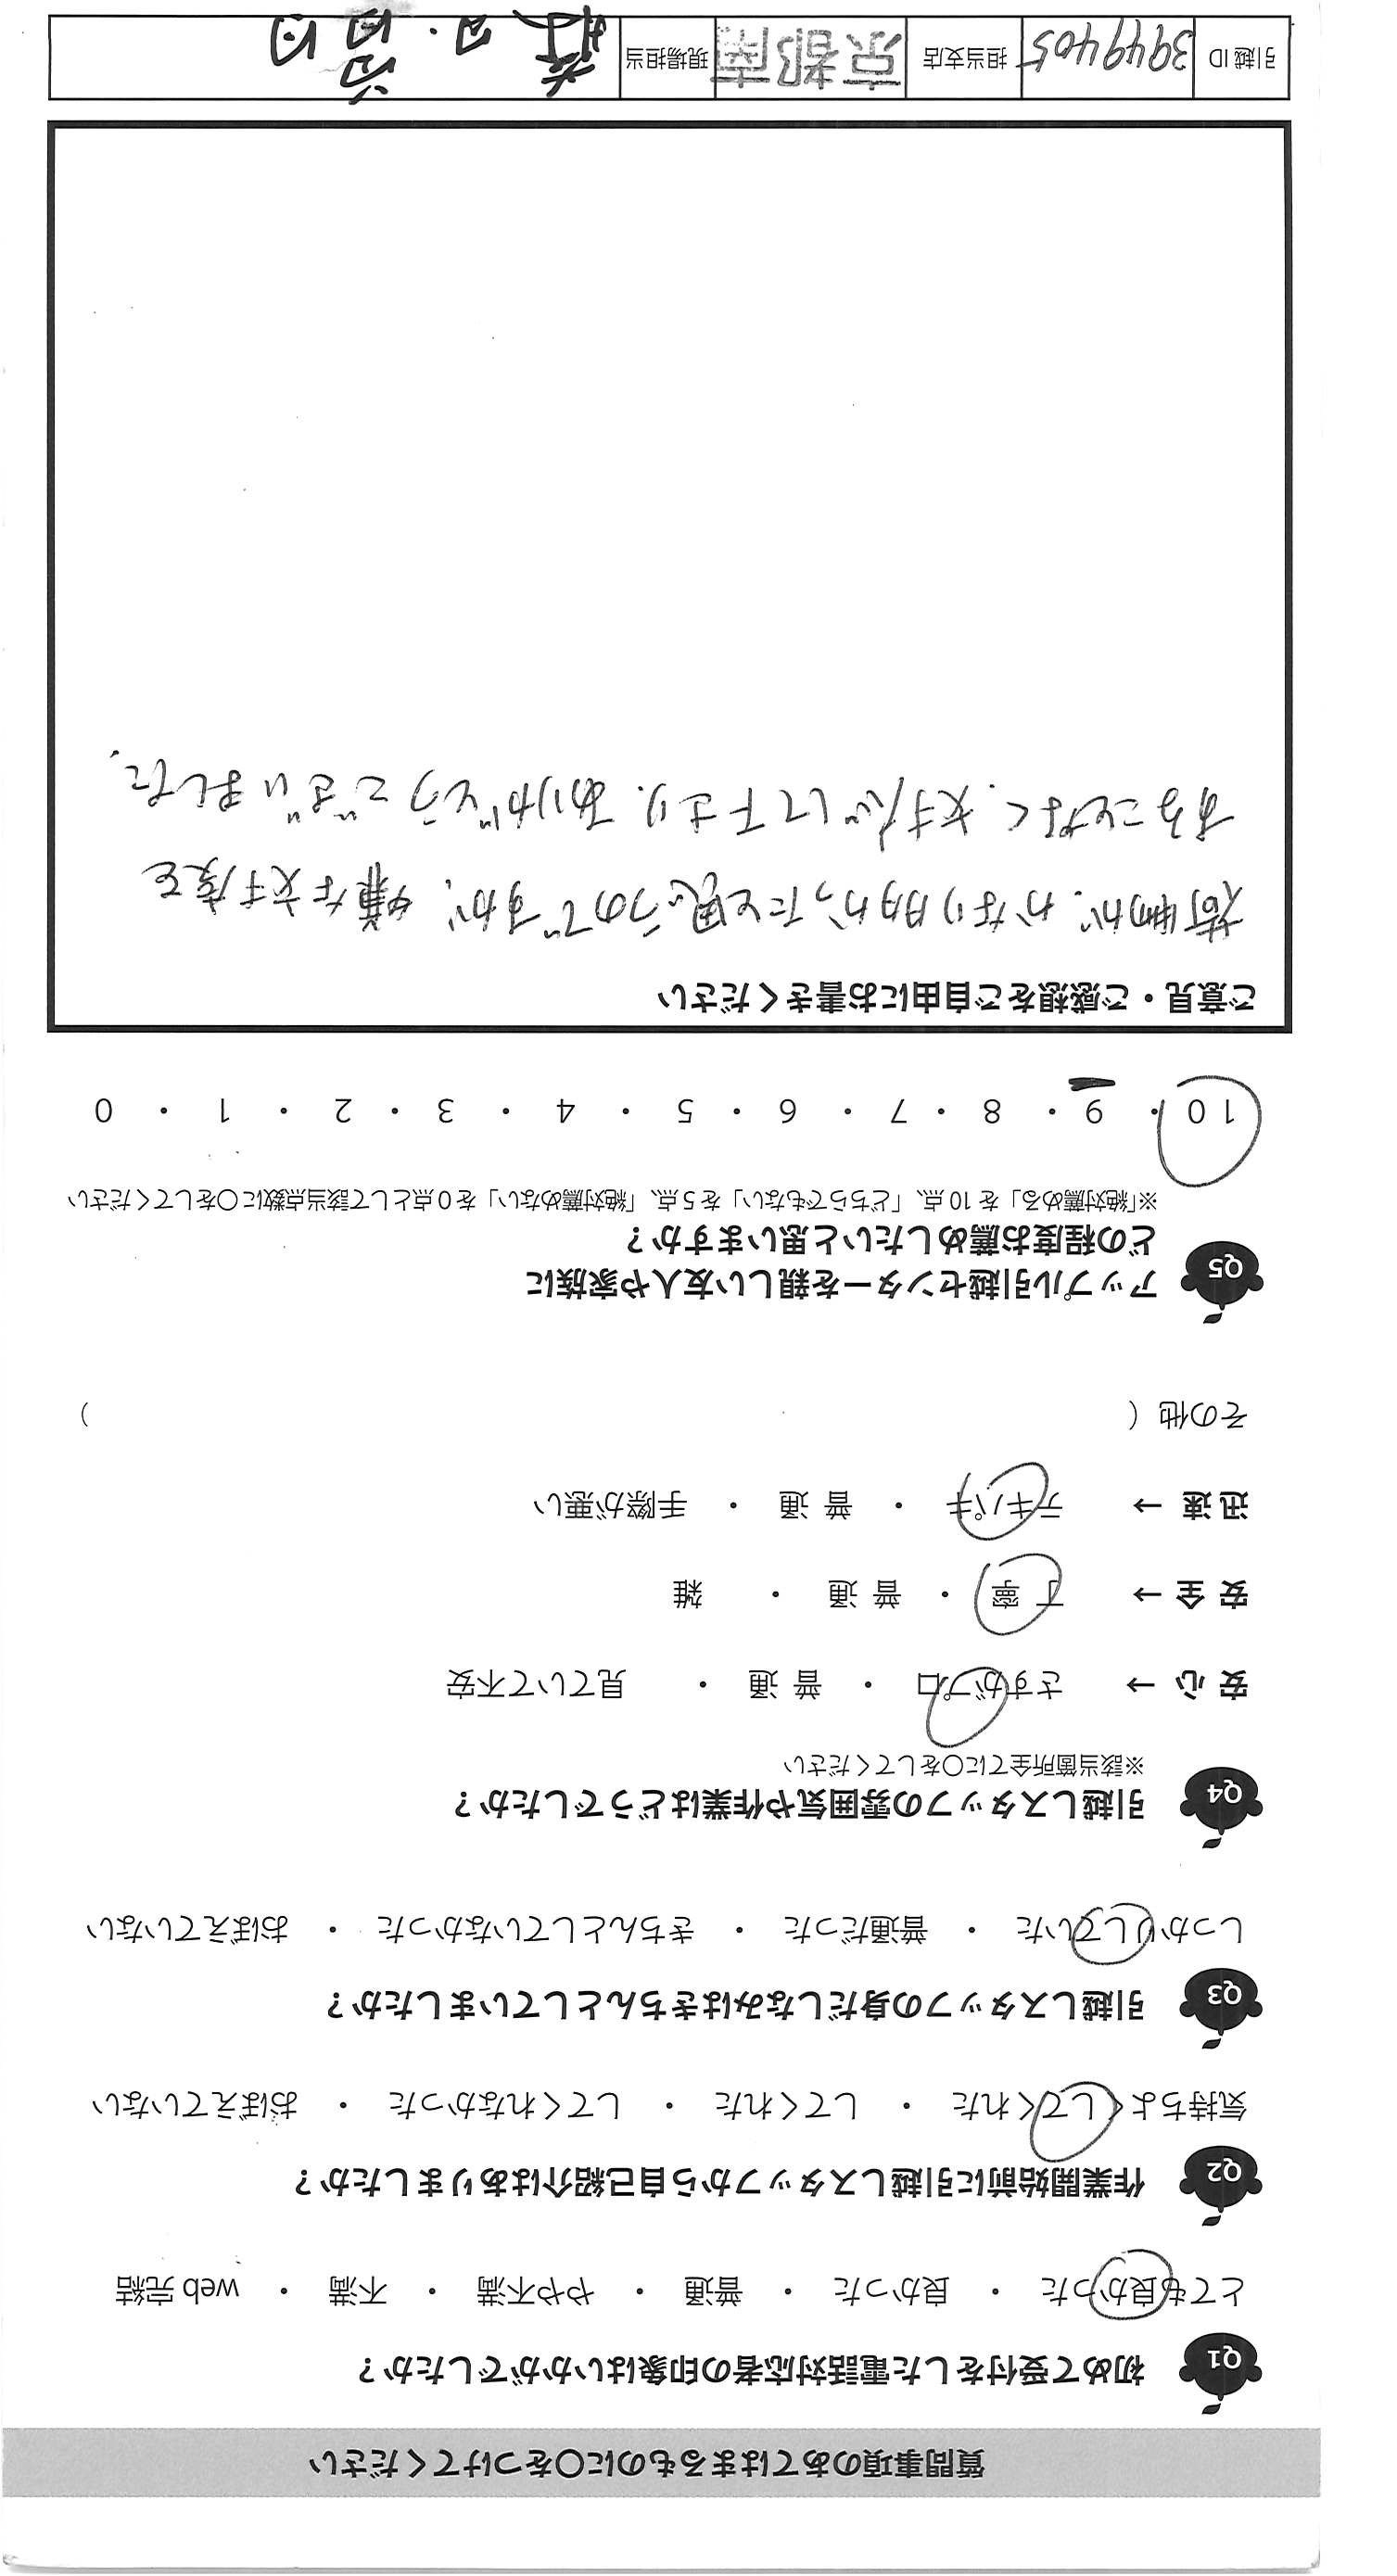 質問事項のあてはまるものに○をつけてください
Q1 初めて受付をした電話対応者の印象はいかがでしたか？
とても良かった ・ 良かった ・ 普通 ・ やや不満 ・ 不満 ・ web 完結
Q2 作業開始前に引越しスタッフから自己紹介はありましたか？
気持ちよくしてくれた ・ してくれた ・ してくれなかった ・ おぼえていない
Q3 引越しスタッフの身だしなみはきちんとしていましたか？
しっかりしていた ・ 普通だった ・ きちんとしていなかった ・ おぼえていない
Q4 引越しスタッフの雰囲気や作業はどうでしたか？
※該当箇所全てに○をしてください
安 心 → さすがプロ ・ 普 通 ・ 見ていて不安
安 全 → 丁 寧 ・ 普 通 ・ 雑
迅 速 → テキパキ ・ 普 通 ・ 手際が悪い
その他（ ）
Q5 アップル引越センターを親しい友人や家族に
どの程度お薦めしたいと思いますか？
※「絶対薦める」を 10 点、「どちらでもない」を 5 点、「絶対薦めない」を 0 点として該当点数に○をしてください
10 ・ 9 ・ 8 ・ 7 ・ 6 ・ 5 ・ 4 ・ 3 ・ 2 ・ 1 ・ 0
ご意見・ご感想をご自由にお書きください
荷物が、かなり多かったと思うのですが、嫌な態度を
することなく、対応して下さり、ありがとうございました。
引越 ID 3949405 担当支店 京都南 現場担当